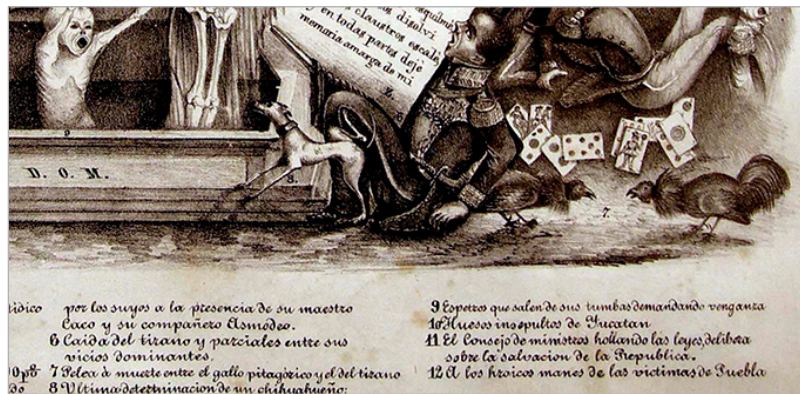 y claustros escalé,
y en todas partes dejé
memoria amarga de mí
D. O. M.
9
8.
7.
por los suyos a la presencia de su maestro
Caco y su compañero Asmodeo.
6 Caida del tirano y parciales entre sus
vicios dominantes.
7 Pelea à muerte entre el gallo pitagórico y el del tirano
8 Ultima determinacion de un chihuahueño:
9 Espetros que salen de sus tumbas demandando venganza
10 Huesos insepultos de Yucatan
11 El Consejo de ministros hollando las leyes, delibera
sobre la salvacion de la Republica.
12 A los hroicos manes de las victimas de Puebla